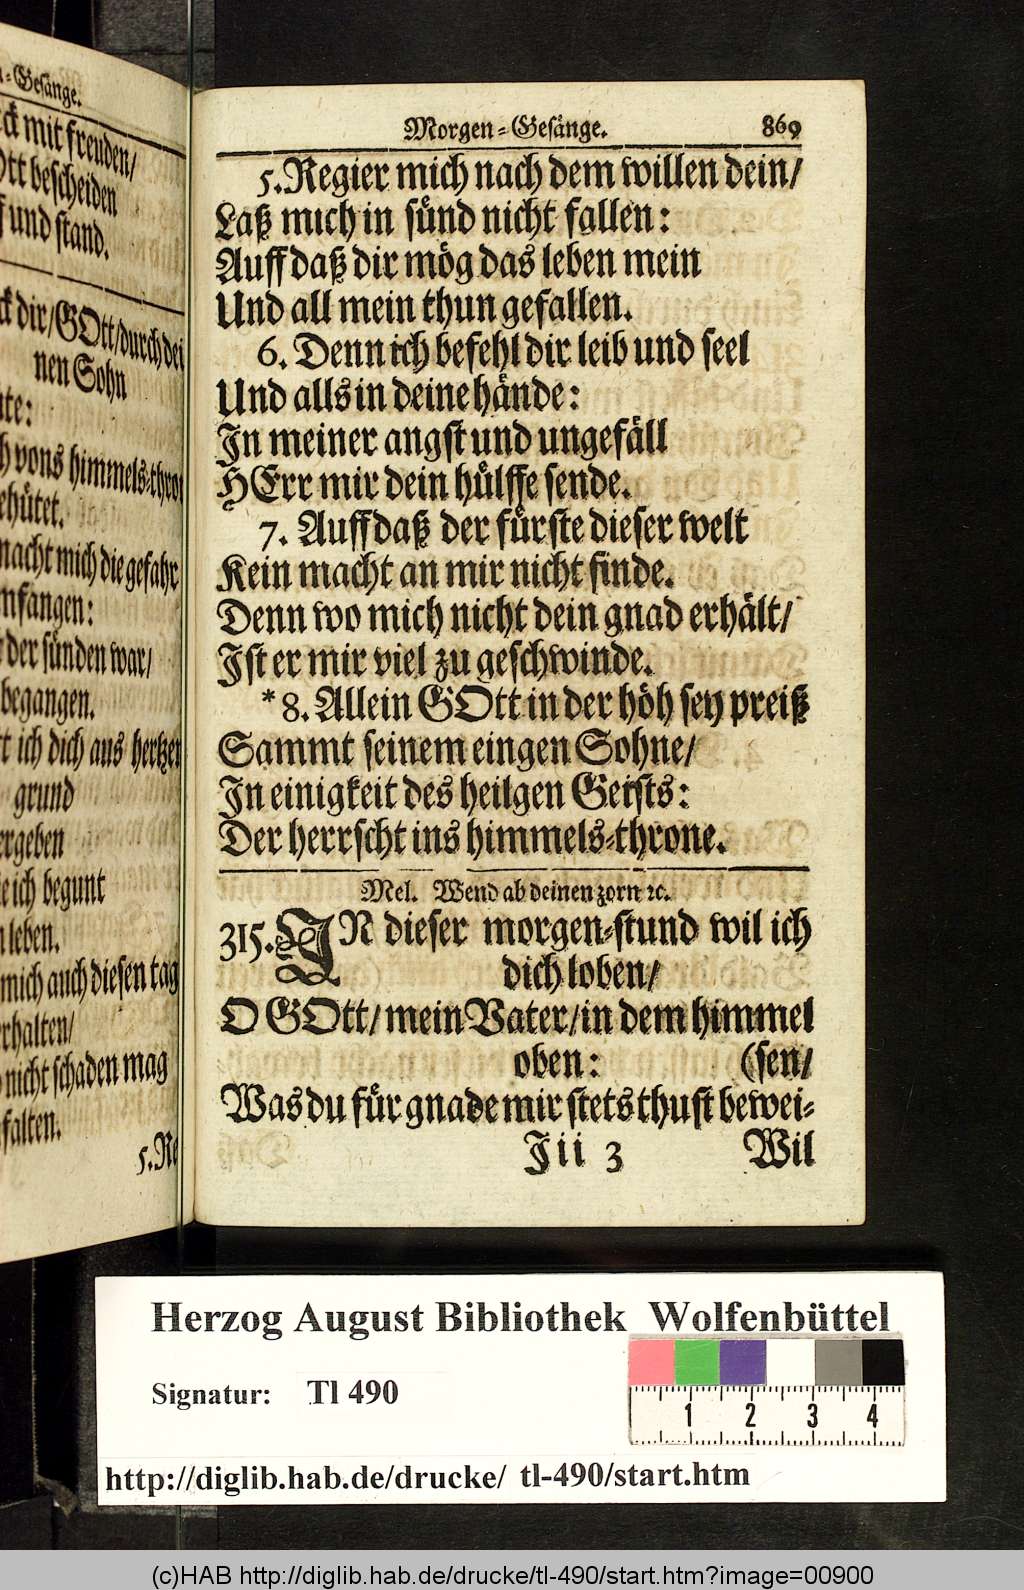 Gesänge.
mit freuden/
bescheiden
und stand.
dir/GOtt/durch dei
nen Sohn
vons himmels-thro
macht mich die gefahr
der sünden war/
begangen.
ich dich aus hertzen
grund
ich begunt
leben.
mich auch diesen tag
nicht schaden mag
5.Re
Morgen-Gesänge. 869
5. Regier mich nach dem willen dein/
Laß mich in sünd nicht fallen:
Auff daß dir mög das leben mein
Und all mein thun gefallen.
6. Denn ich befehl dir leib und seel
Und alls in deine hände:
In meiner angst und ungefäll
HErr mir dein hülffe sende.
7. Auff daß der fürste dieser welt
Kein macht an mir nicht finde.
Denn wo mich nicht dein gnad erhält/
Ist er mir viel zu geschwinde.
*8. Allein GOtt in der höh sey preiß
Sammt seinem eingen Sohne/
In einigkeit des heilgen Geists:
Der herrscht ins himmels-throne.
Mel. Wend ab deinen zorn ꝛc.
315. IN dieser morgen-stund wil ich
dich loben/
O GOtt/mein Vater/in dem himmel
oben: (sen/
Was du für gnade mir stets thust bewei-
Iii 3 Wil
Herzog August Bibliothek Wolfenbüttel
Signatur: Tl 490
1 2 3 4
http://diglib.hab.de/drucke/ tl-490/start.htm
(c)HAB http://diglib.hab.de/drucke/tl-490/start.htm?image=00900